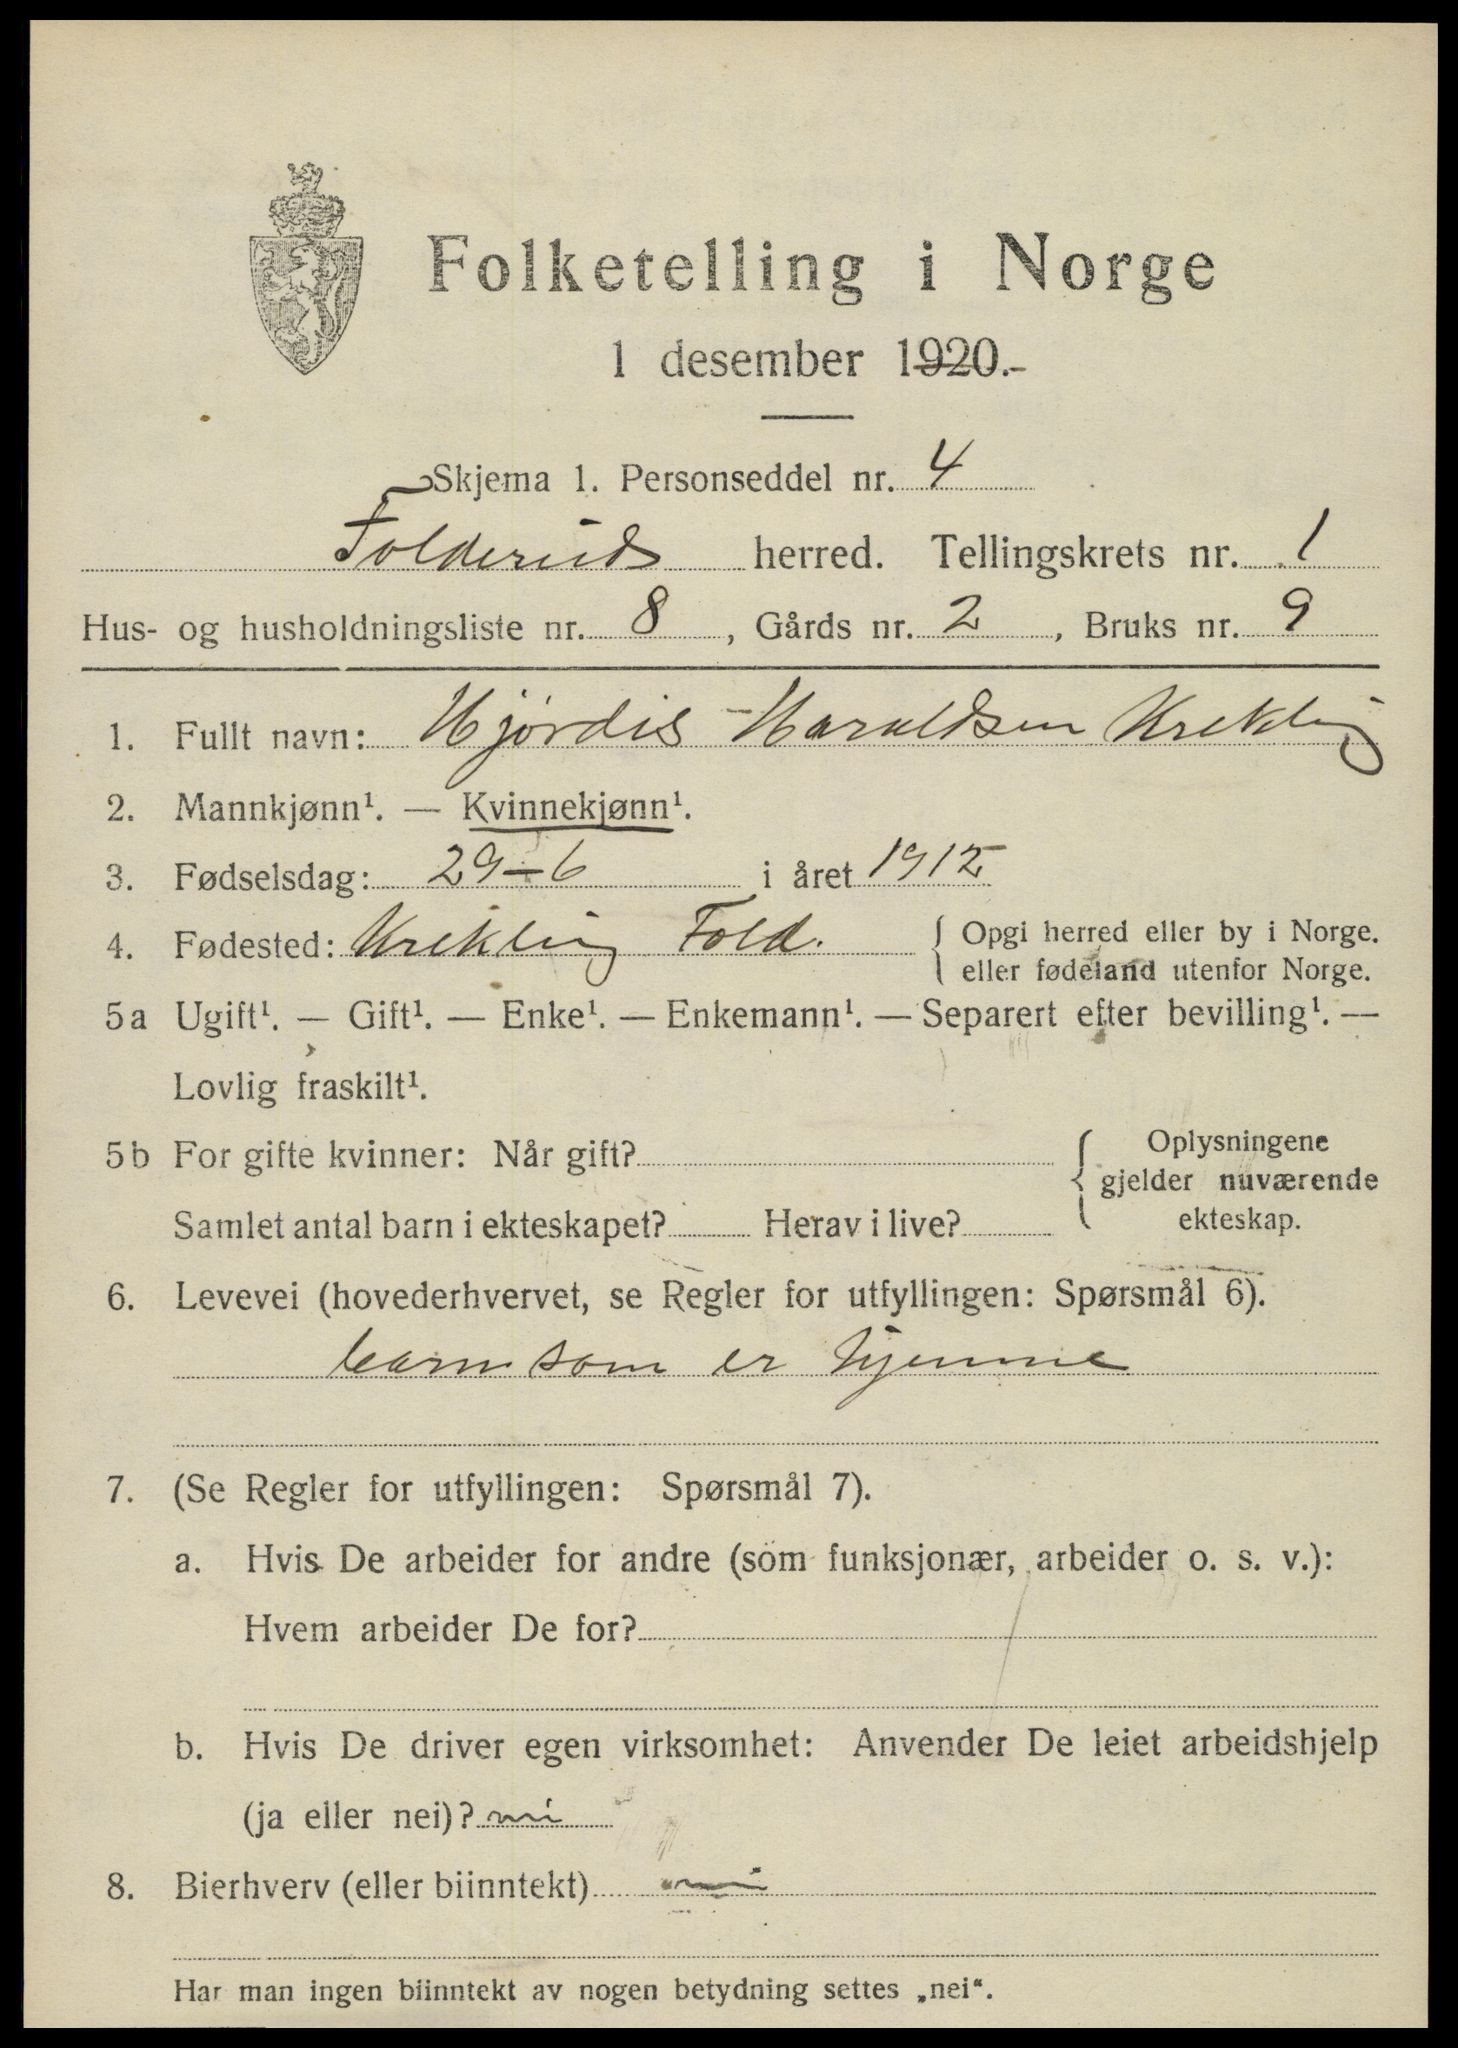 Folketelling i Norge
1 desember 1920.
Skjema 1. Personseddel nr. 4
Foldereids herred. Tellingskrets nr. 1
Hus- og husholdningsliste nr. 8, Gårds nr. 2, Bruks nr. 9
1. Fullt navn: Hjørdis Haraldsen Krekling
2. Mannkjønn¹. — Kvinnekjønn¹.
3. Fødselsdag: 29-6 i året 1912
4. Fødested: Krekling Fold. { Opgi herred eller by i Norge.
eller fødeland utenfor Norge.
5a Ugift¹. — Gift¹. — Enke¹. — Enkemann¹. — Separert efter bevilling¹. —
Lovlig fraskilt¹.
5b For gifte kvinner: Når gift? { Oplysningene
gjelder nuværende
Samlet antal barn i ekteskapet? Herav i live? ekteskap.
6. Levevei (hovederhvervet, se Regler for utfyllingen: Spørsmål 6).
barn som er hjemme
7. (Se Regler for utfyllingen: Spørsmål 7).
a. Hvis De arbeider for andre (som funksjonær, arbeider o. s. v.):
Hvem arbeider De for?
b. Hvis De driver egen virksomhet: Anvender De leiet arbeidshjelp
(ja eller nei)? nei
8. Bierhverv (eller biinntekt) nei
Har man ingen biinntekt av nogen betydning settes „nei“.